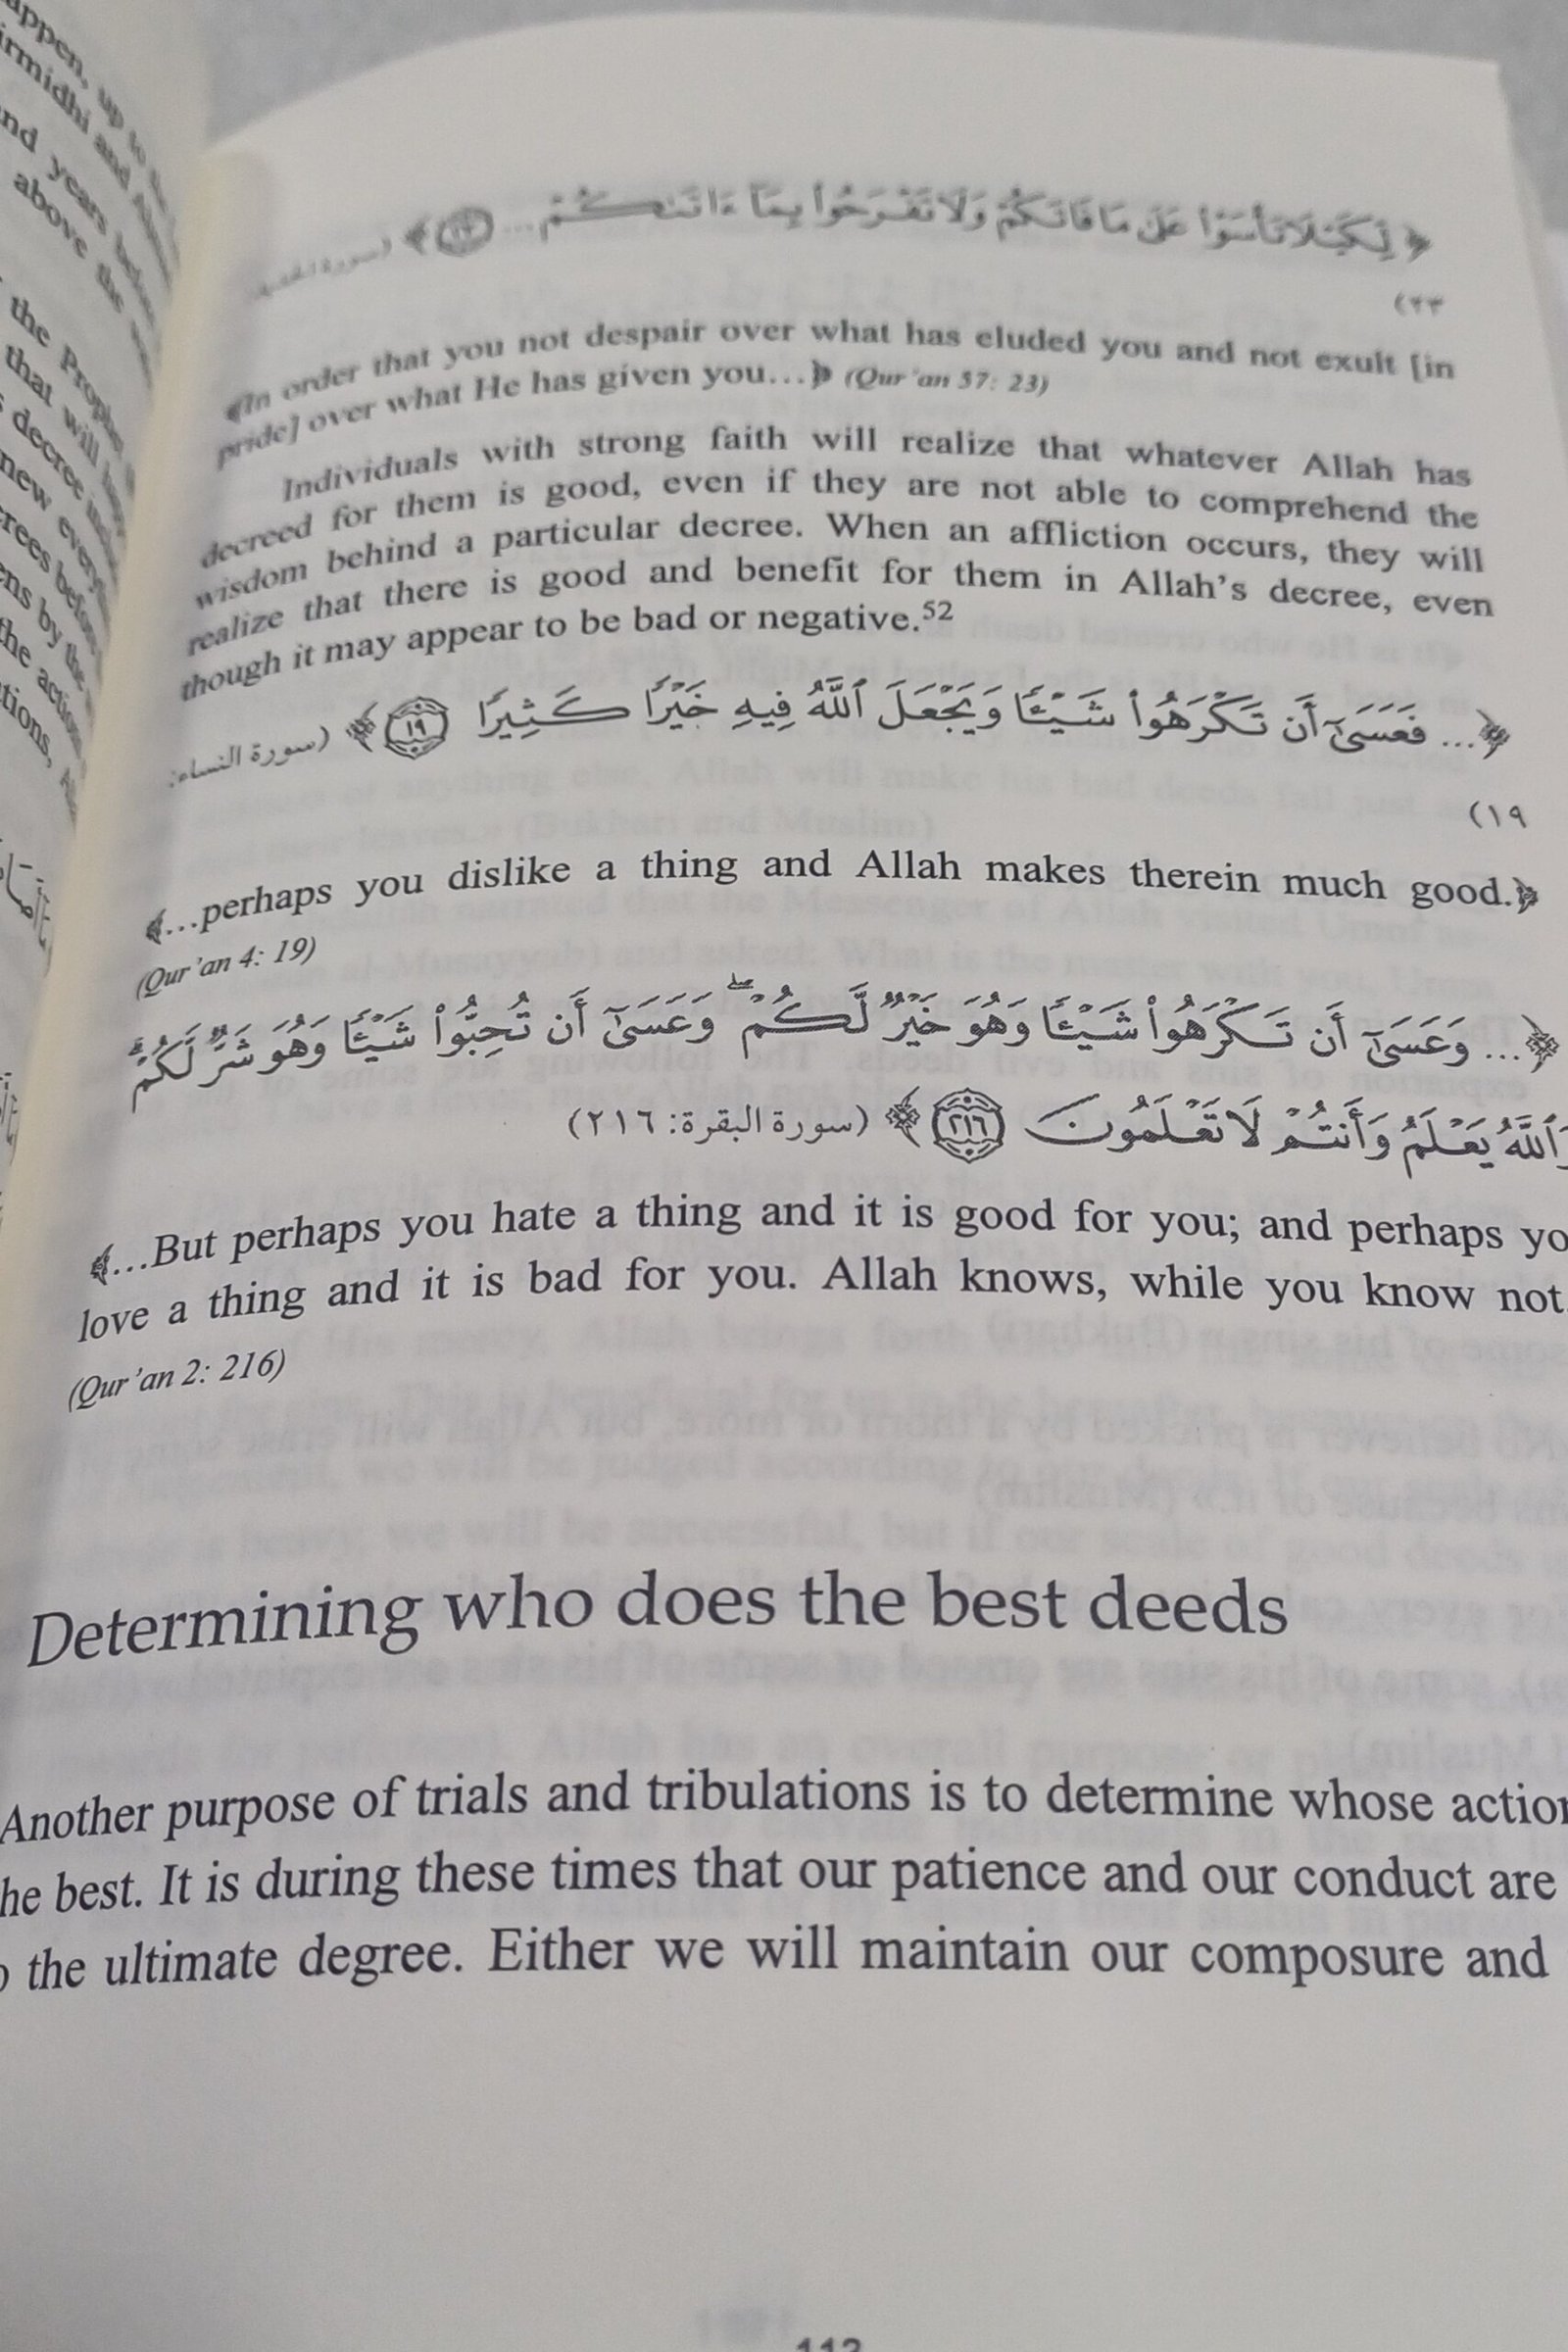 appen, up to
irmidhi and
nd years
above the
the Prophet
that will
decree
new
the
﴿ لِكَيْلَا تَأْسَوْا۟ عَلَىٰ مَا فَاتَكُمْ وَلَا تَفْرَحُوا۟ بِمَآ ءَاتَىٰكُمْ ... ﴾ (سورة
٢٣)
﴾In order that you not despair over what has eluded you and not exult [in
pride] over what He has given you...﴿ (Qur’an 57: 23)
Individuals with strong faith will realize that whatever Allah has
decreed for them is good, even if they are not able to comprehend the
wisdom behind a particular decree. When an affliction occurs, they will
realize that there is good and benefit for them in Allah’s decree, even
though it may appear to be bad or negative.52
﴿ ... فَعَسَىٰٓ أَن تَكْرَهُوا۟ شَيْـًٔا وَيَجْعَلَ ٱللَّهُ فِيهِ خَيْرًا كَثِيرًا ١٩ ﴾ (سورة النساء:
١٩)
﴾...perhaps you dislike a thing and Allah makes therein much good.﴿
(Qur’an 4: 19)
﴿ ... وَعَسَىٰٓ أَن تَكْرَهُوا۟ شَيْـًٔا وَهُوَ خَيْرٌ لَّكُمْ ۖ وَعَسَىٰٓ أَن تُحِبُّوا۟ شَيْـًٔا وَهُوَ شَرٌّ لَّكُمْ ۗ
وَٱللَّهُ يَعْلَمُ وَأَنتُمْ لَا تَعْلَمُونَ ٢١٦ ﴾ (سورة البقرة: ٢١٦)
﴾...But perhaps you hate a thing and it is good for you; and perhaps yo
love a thing and it is bad for you. Allah knows, while you know not
(Qur’an 2: 216)
Determining who does the best deeds
Another purpose of trials and tribulations is to determine whose action
he best. It is during these times that our patience and our conduct are
o the ultimate degree. Either we will maintain our composure and